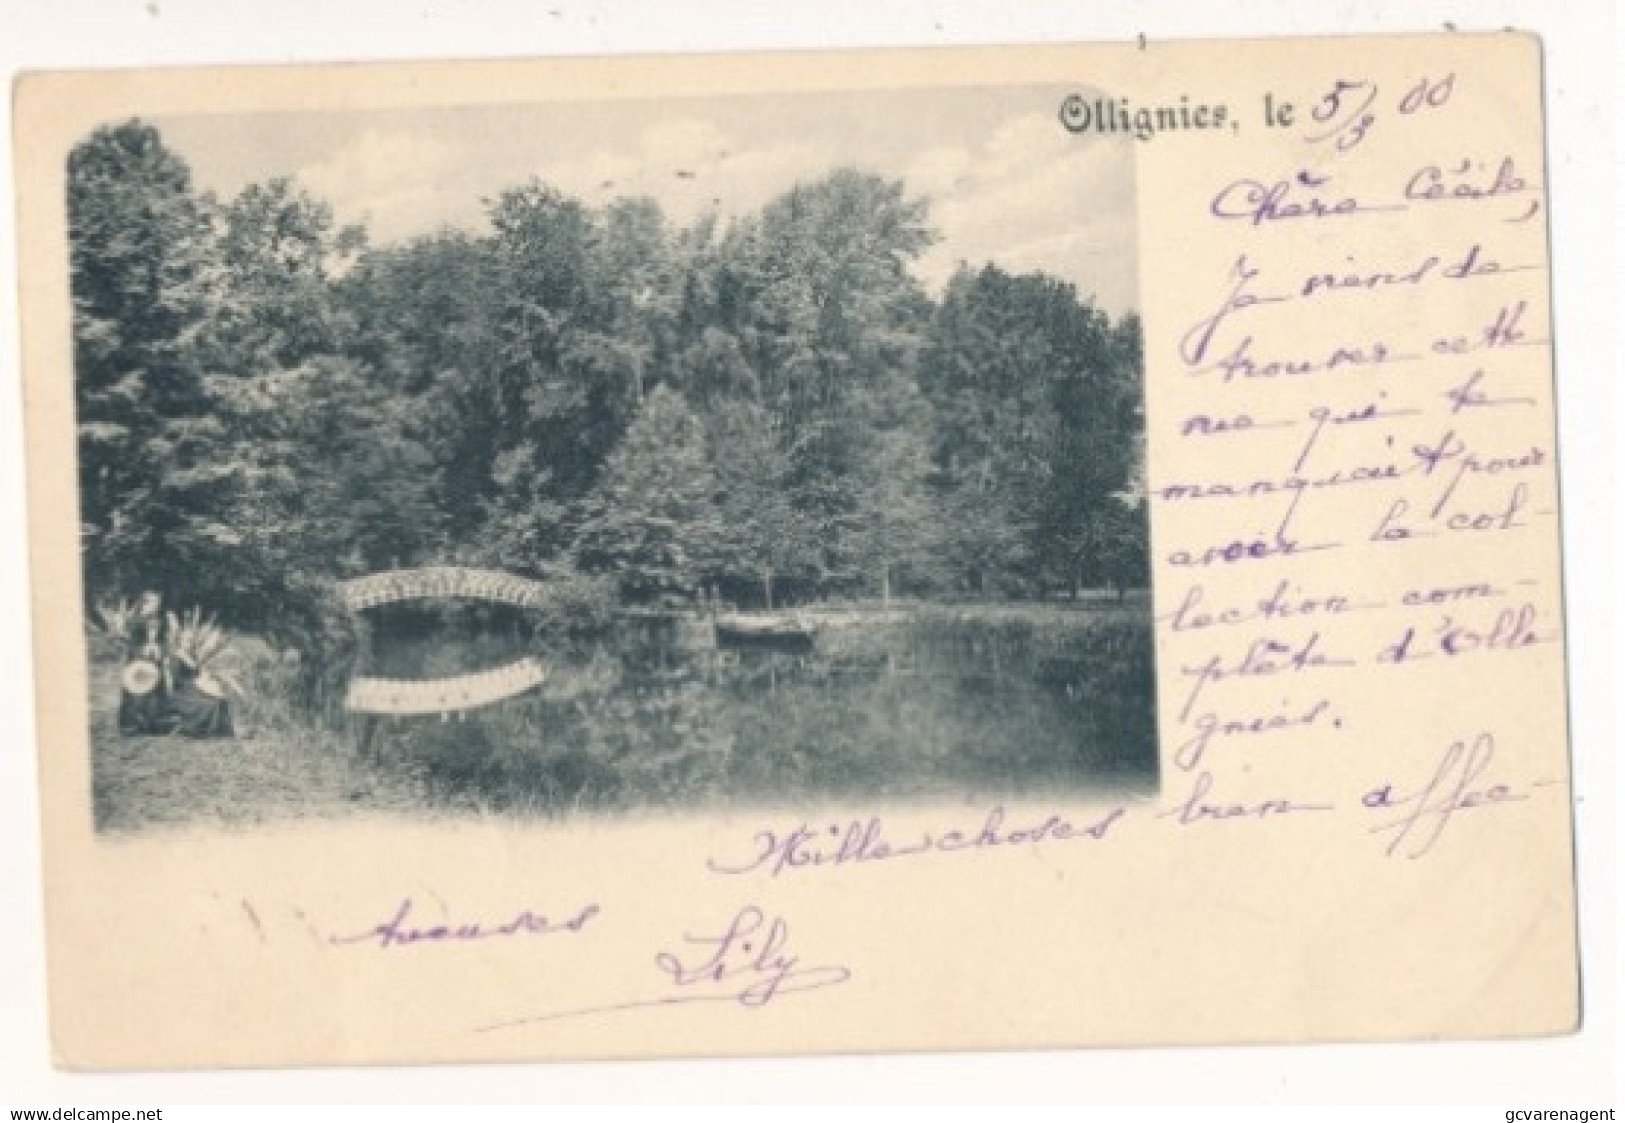 Ollignies, le 5/3 00
Chère Cécile,
Je viens de
trouver cette
vue qui te
manquait pour
avoir la col-
lection com-
plète d'Olli
gnies.
Mille choses bien affec-
tueuses
Lily
www.delcampe.net
gcvarenagent